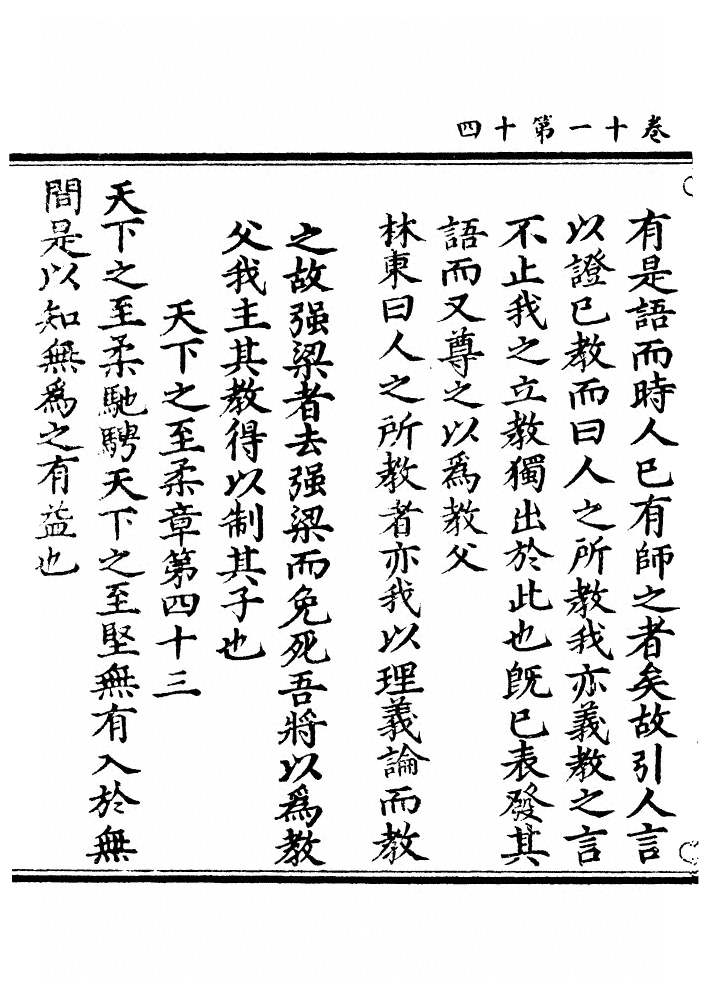 卷十一第十四
有是語而時人已有師之者矣故引人言
以證已教而曰人之所教我亦義教之言
不止我之立教獨出於此也旣已表發其
語而又尊之以爲教父
林東曰人之所教者亦我以理義論而教
之故强梁者去强梁而免死吾將以爲教
父我主其教得以制其子也
天下之至柔章第四十三
天下之至柔馳騁天下之至堅無有入於無
間是以知無爲之有益也